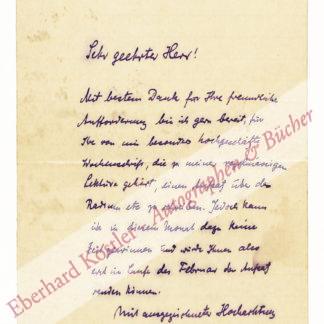 Sehr geehrter Herr!
Mit bestem Dank für Ihre freundliche
Aufforderung bin ich gern bereit, für
Ihre von mir besonders hochgeschätzte
Wochenschrift, die zu meiner regelmässigen
Lektüre gehört, einen Aufsatz über das
Radium etc zu schreiben. Jedoch kann
ich in diesem Monat dazu keine
Zeit gewinnen und würde Ihnen also
erst im Laufe des Februar den Aufsatz
senden können.
Mit ausgezeichneter Hochachtung
Eberhard Köstler - Autographen & Bücher